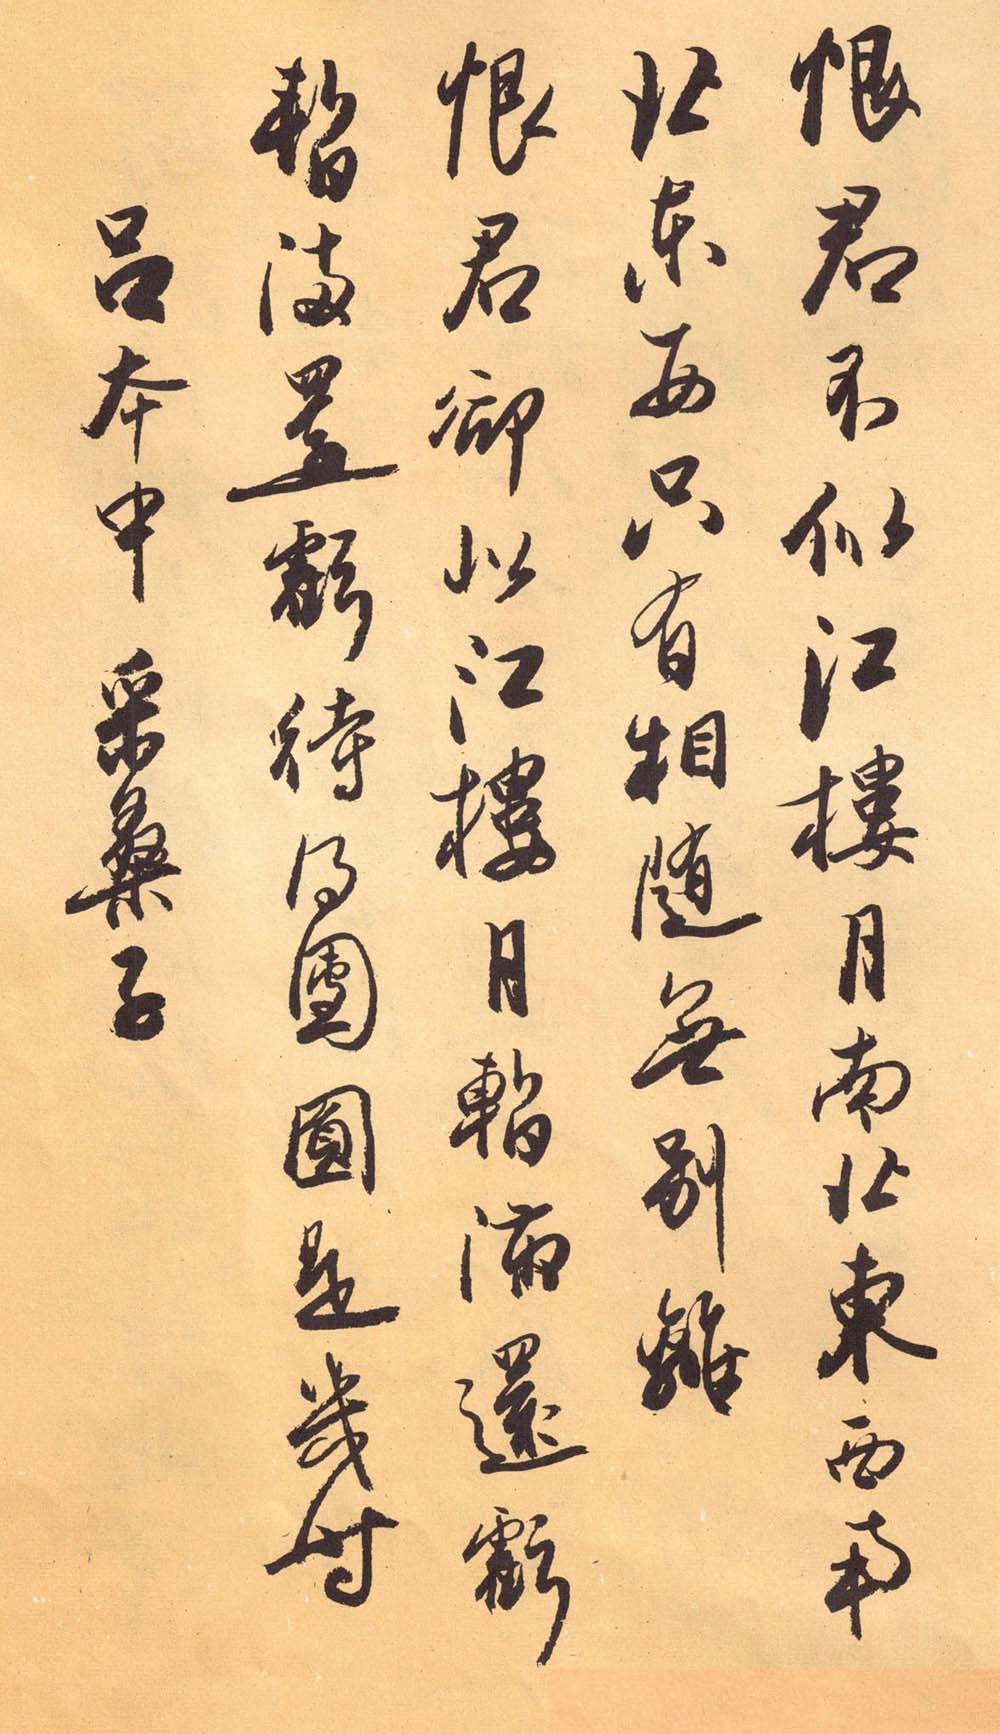 恨君不似江樓月南北東西南
北東西只有相隨無別離
恨君卻似江樓月暫滿還虧
暫滿還虧待得團圓是幾時
呂本中 采桑子